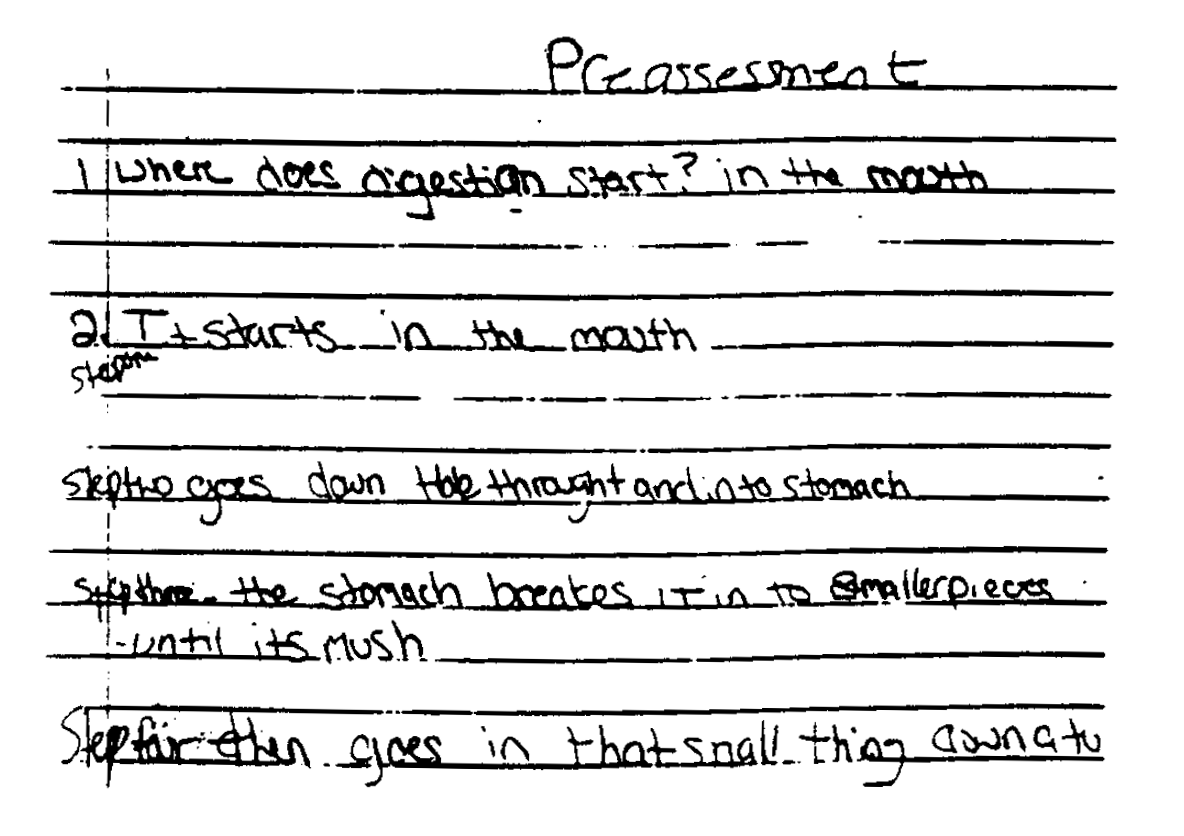 Preassessment
1 Where does digestion start? in the mouth
2. It starts in the mouth
step one
step two goes down the throught and into stomach
step three. the stomach breakes it in to smaller pieces
-until its mush
Step fair then goes in that snall thing down a tu